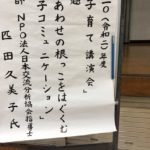 一〇(令和二)年度
子育て講演会」
題
あわせの根っこをはぐくむ
子コミュニケーション
師 NPO法人日本交流分析協会指導士
匹田 久美子氏